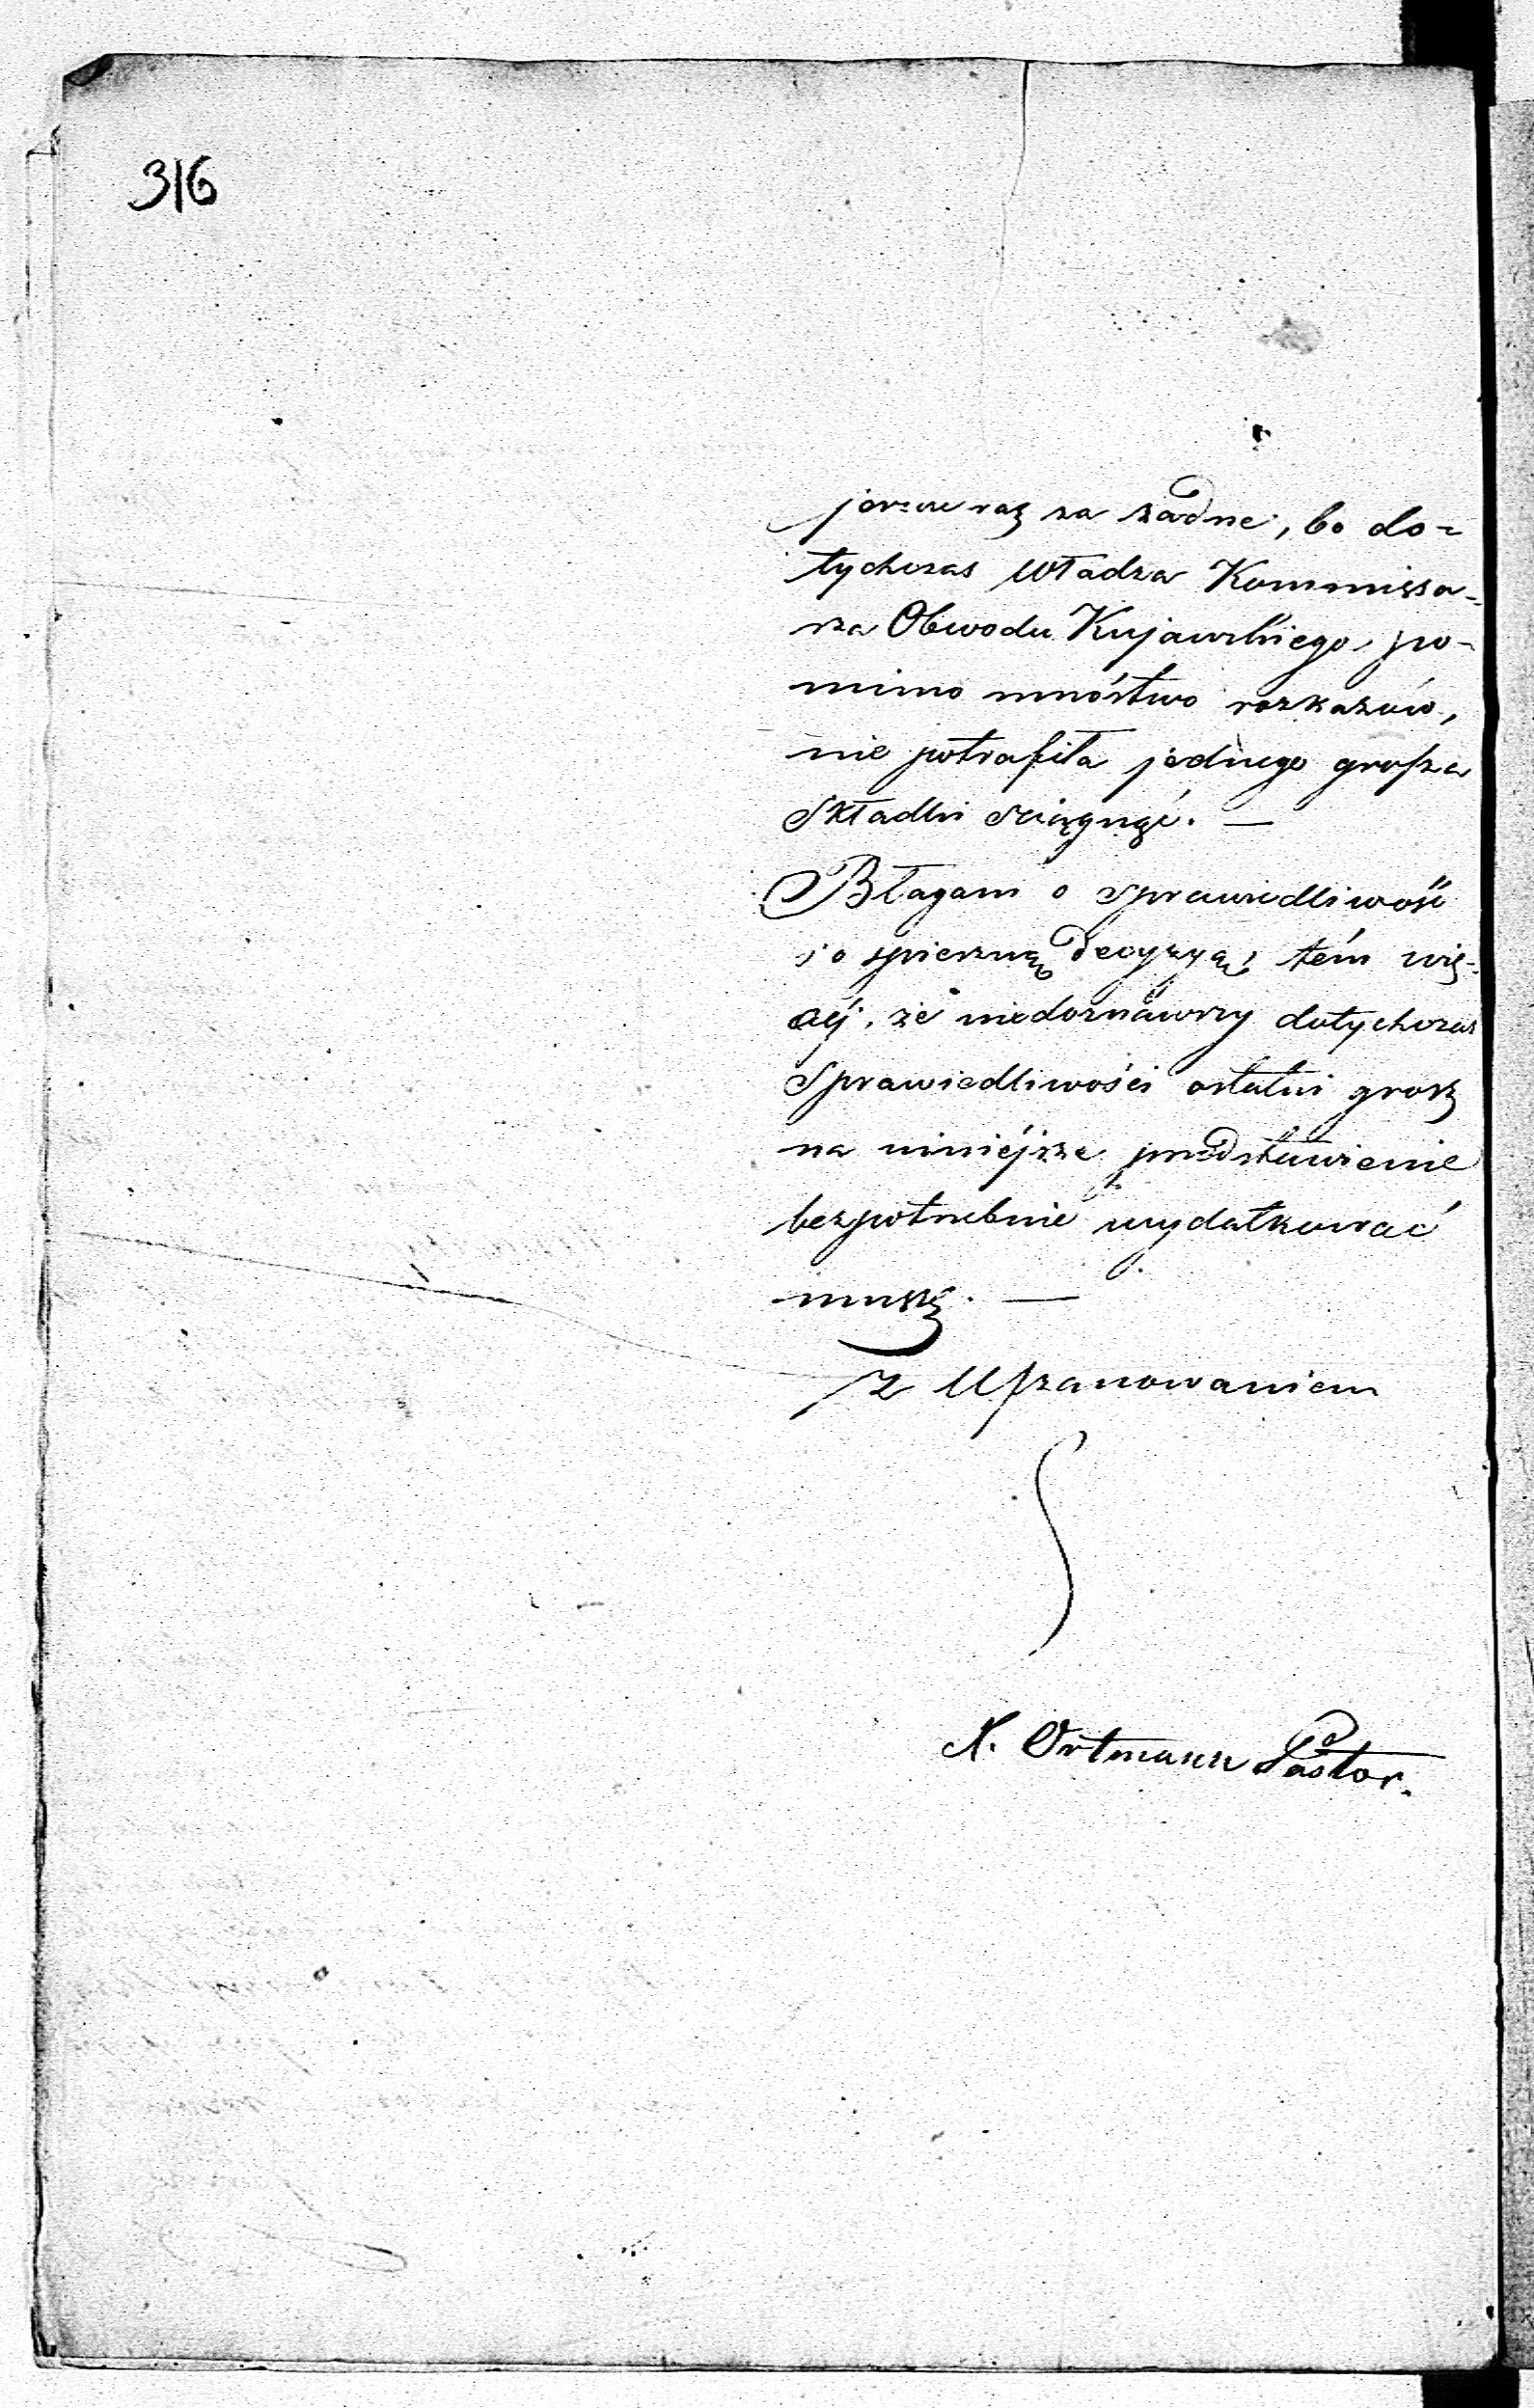 316
raz za żadne, bo do=
tychczas Władza Kommissa=
rza Obwodu Kujawskiego, po=
mimo mnóstwo rozkazów,
nie potrafiła jednego grosza
Składki sciągnąć. —
Błagam o sprawiedliwość
i o spieszną decyzyą, tém wię=
céj, że niedoznawszy dotychczas
Sprawiedliwości ostatni grosz
na niniéjsze przedstawienie
bezpotrzebnie wydatkować
muszę. —
Z Uszanowaniem
Ortmann Pastor.